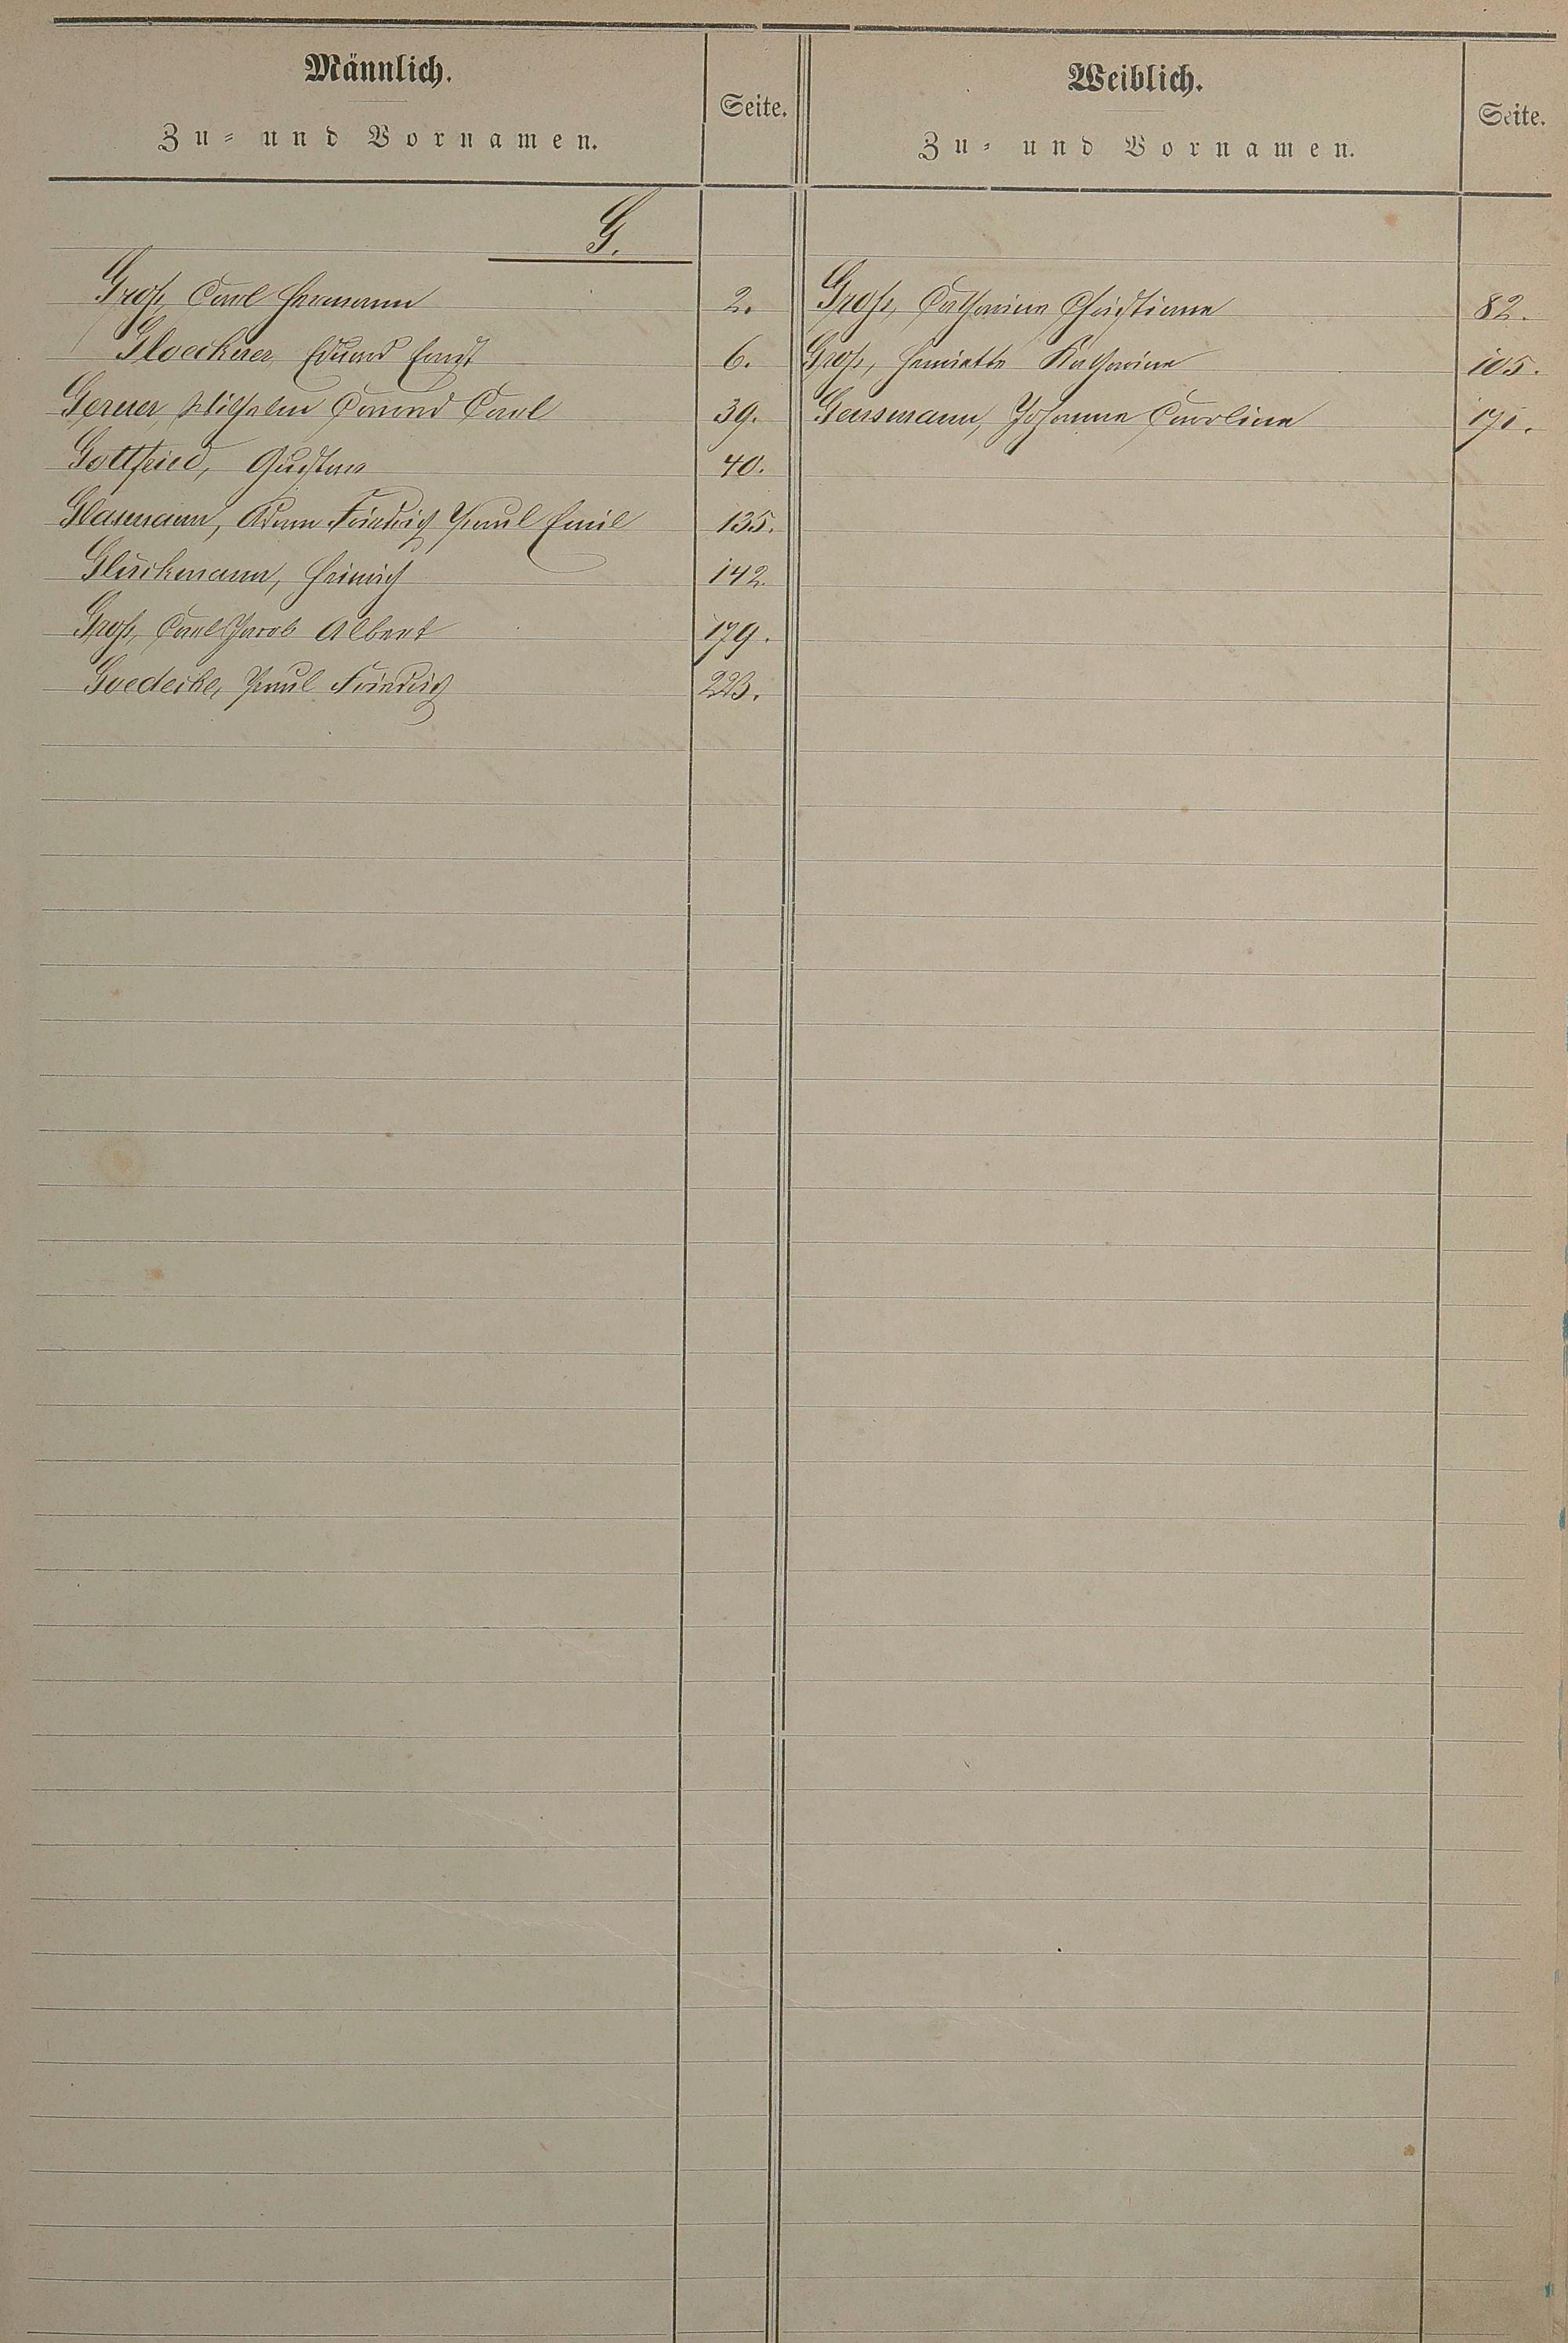 Männlich.
Zu- und Vornamen.
Seite.
G.
Groß, Carl Hermann 2.
Gloeckner, Eduard Ernst 6.
Gerner, Wilhelm Conrad Carl 39.
Gottfried, Gustav 40.
Glasmann, Adam Friedrich Paul Emil 135.
Glückmann, Heinrich 142.
Groß, Carl Jacob Albert 179.
Goedecke, Paul Friedrich 223.
Weiblich.
Zu- und Vornamen.
Seite.
Groß, Catharina Christiane 82.
Groß, Henriette Katharina 105.
Gensmann, Johanna Carolina 171.